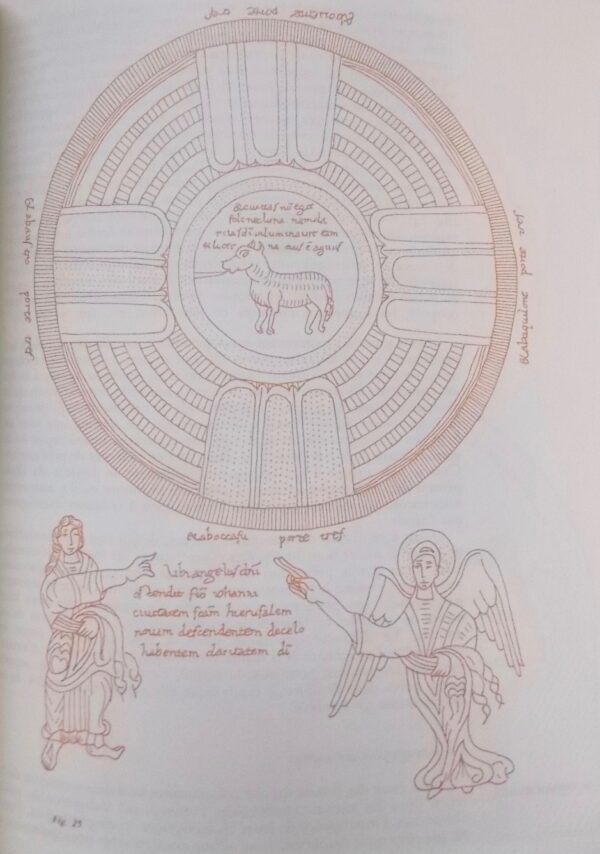 &ciuitas nō eget
sole necluna nam cla
ritas dī inluminauit eam
&lucer na eius ē agnus
&aboccasu porte tres
Ubi angelus dn̄i
ostendit sc̄o iohanni
ciuitatem sc̄am hierusalem
nouam descendentem decelo
habentem claritatem dī
Fig. 25